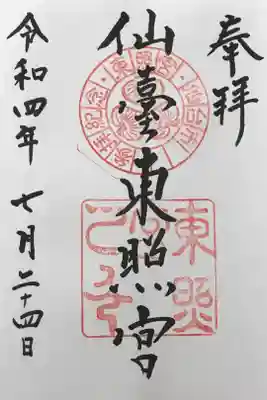 奉拝
仙臺東照宮
令和四年 七月二十四日